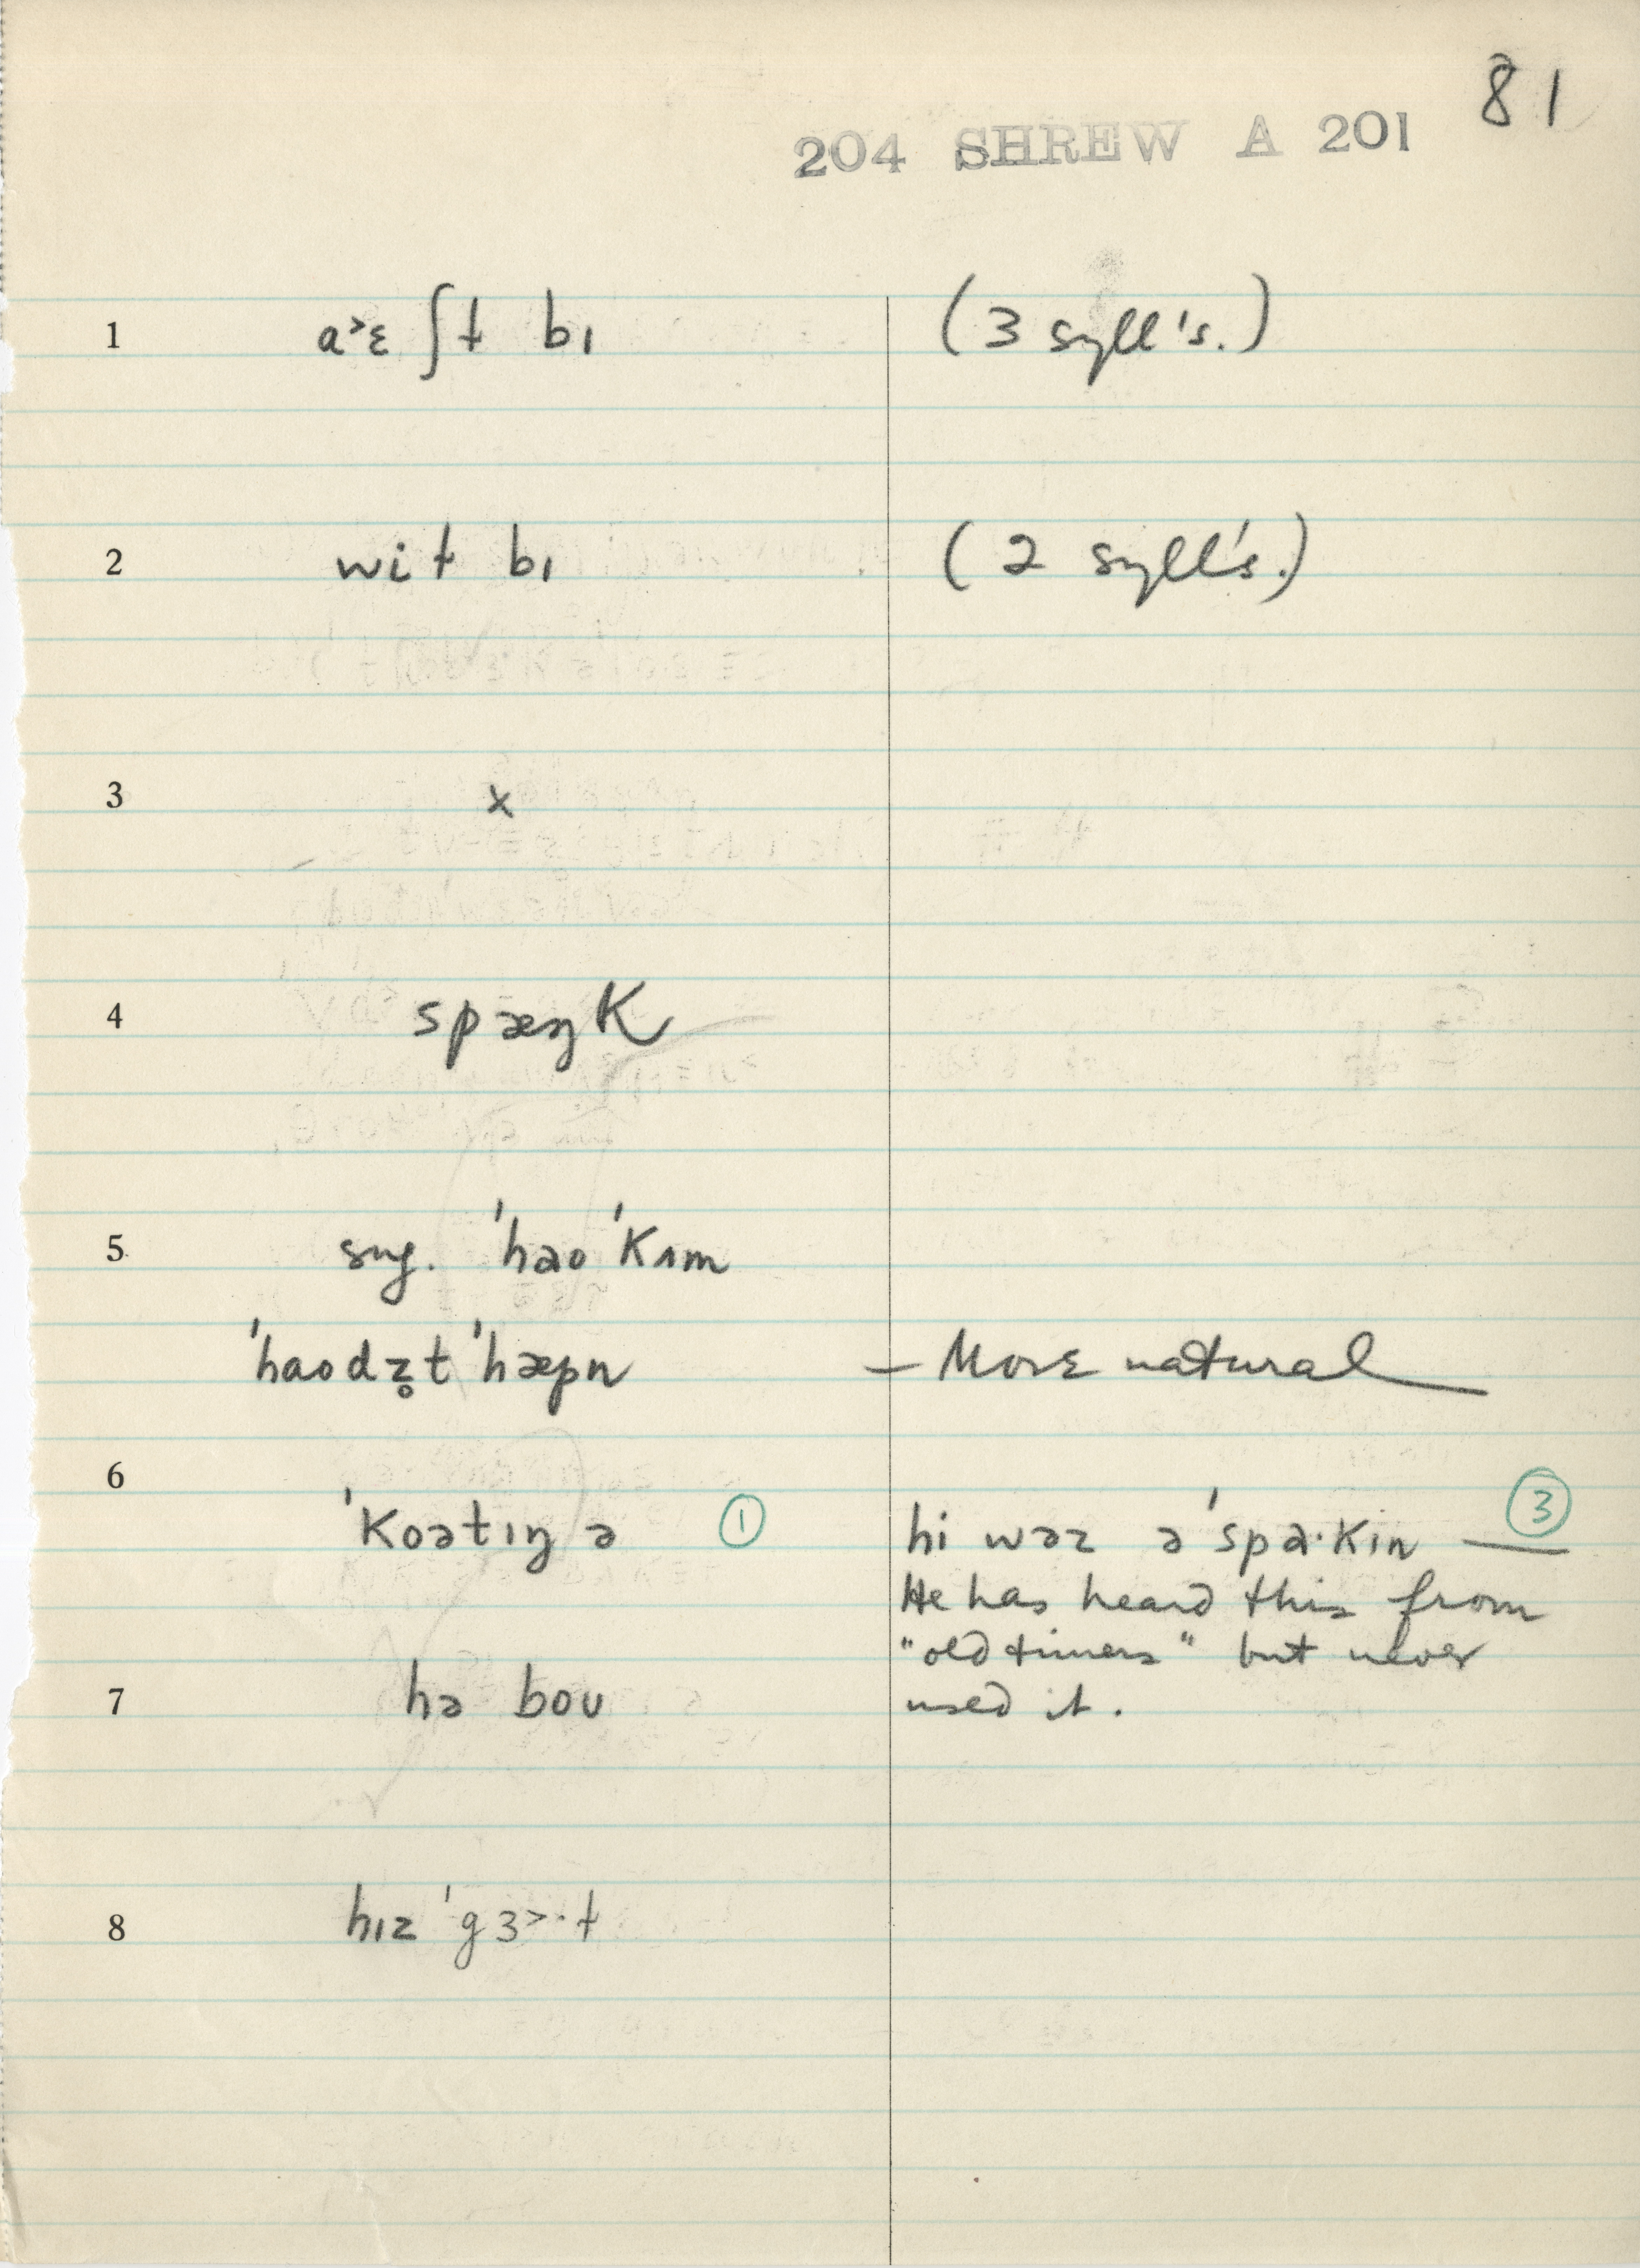 81
204 SHREW A 201
1 a˃ɛ ʃɫ bɪ (3 syll's.)
2 wiɫ bɪ (2 syll's.)
3 x
4 spæŋk
5 sug. 'hao 'kʌm
'haodz̥t 'hæpn — More natural
6
'koətɪŋ ə ① hi wəz ə'spa·kɪn — ③
He has heard this from
"old timers" but never
7 hə boʊ used it.
8 hɪz 'gɜ˃·ɫ